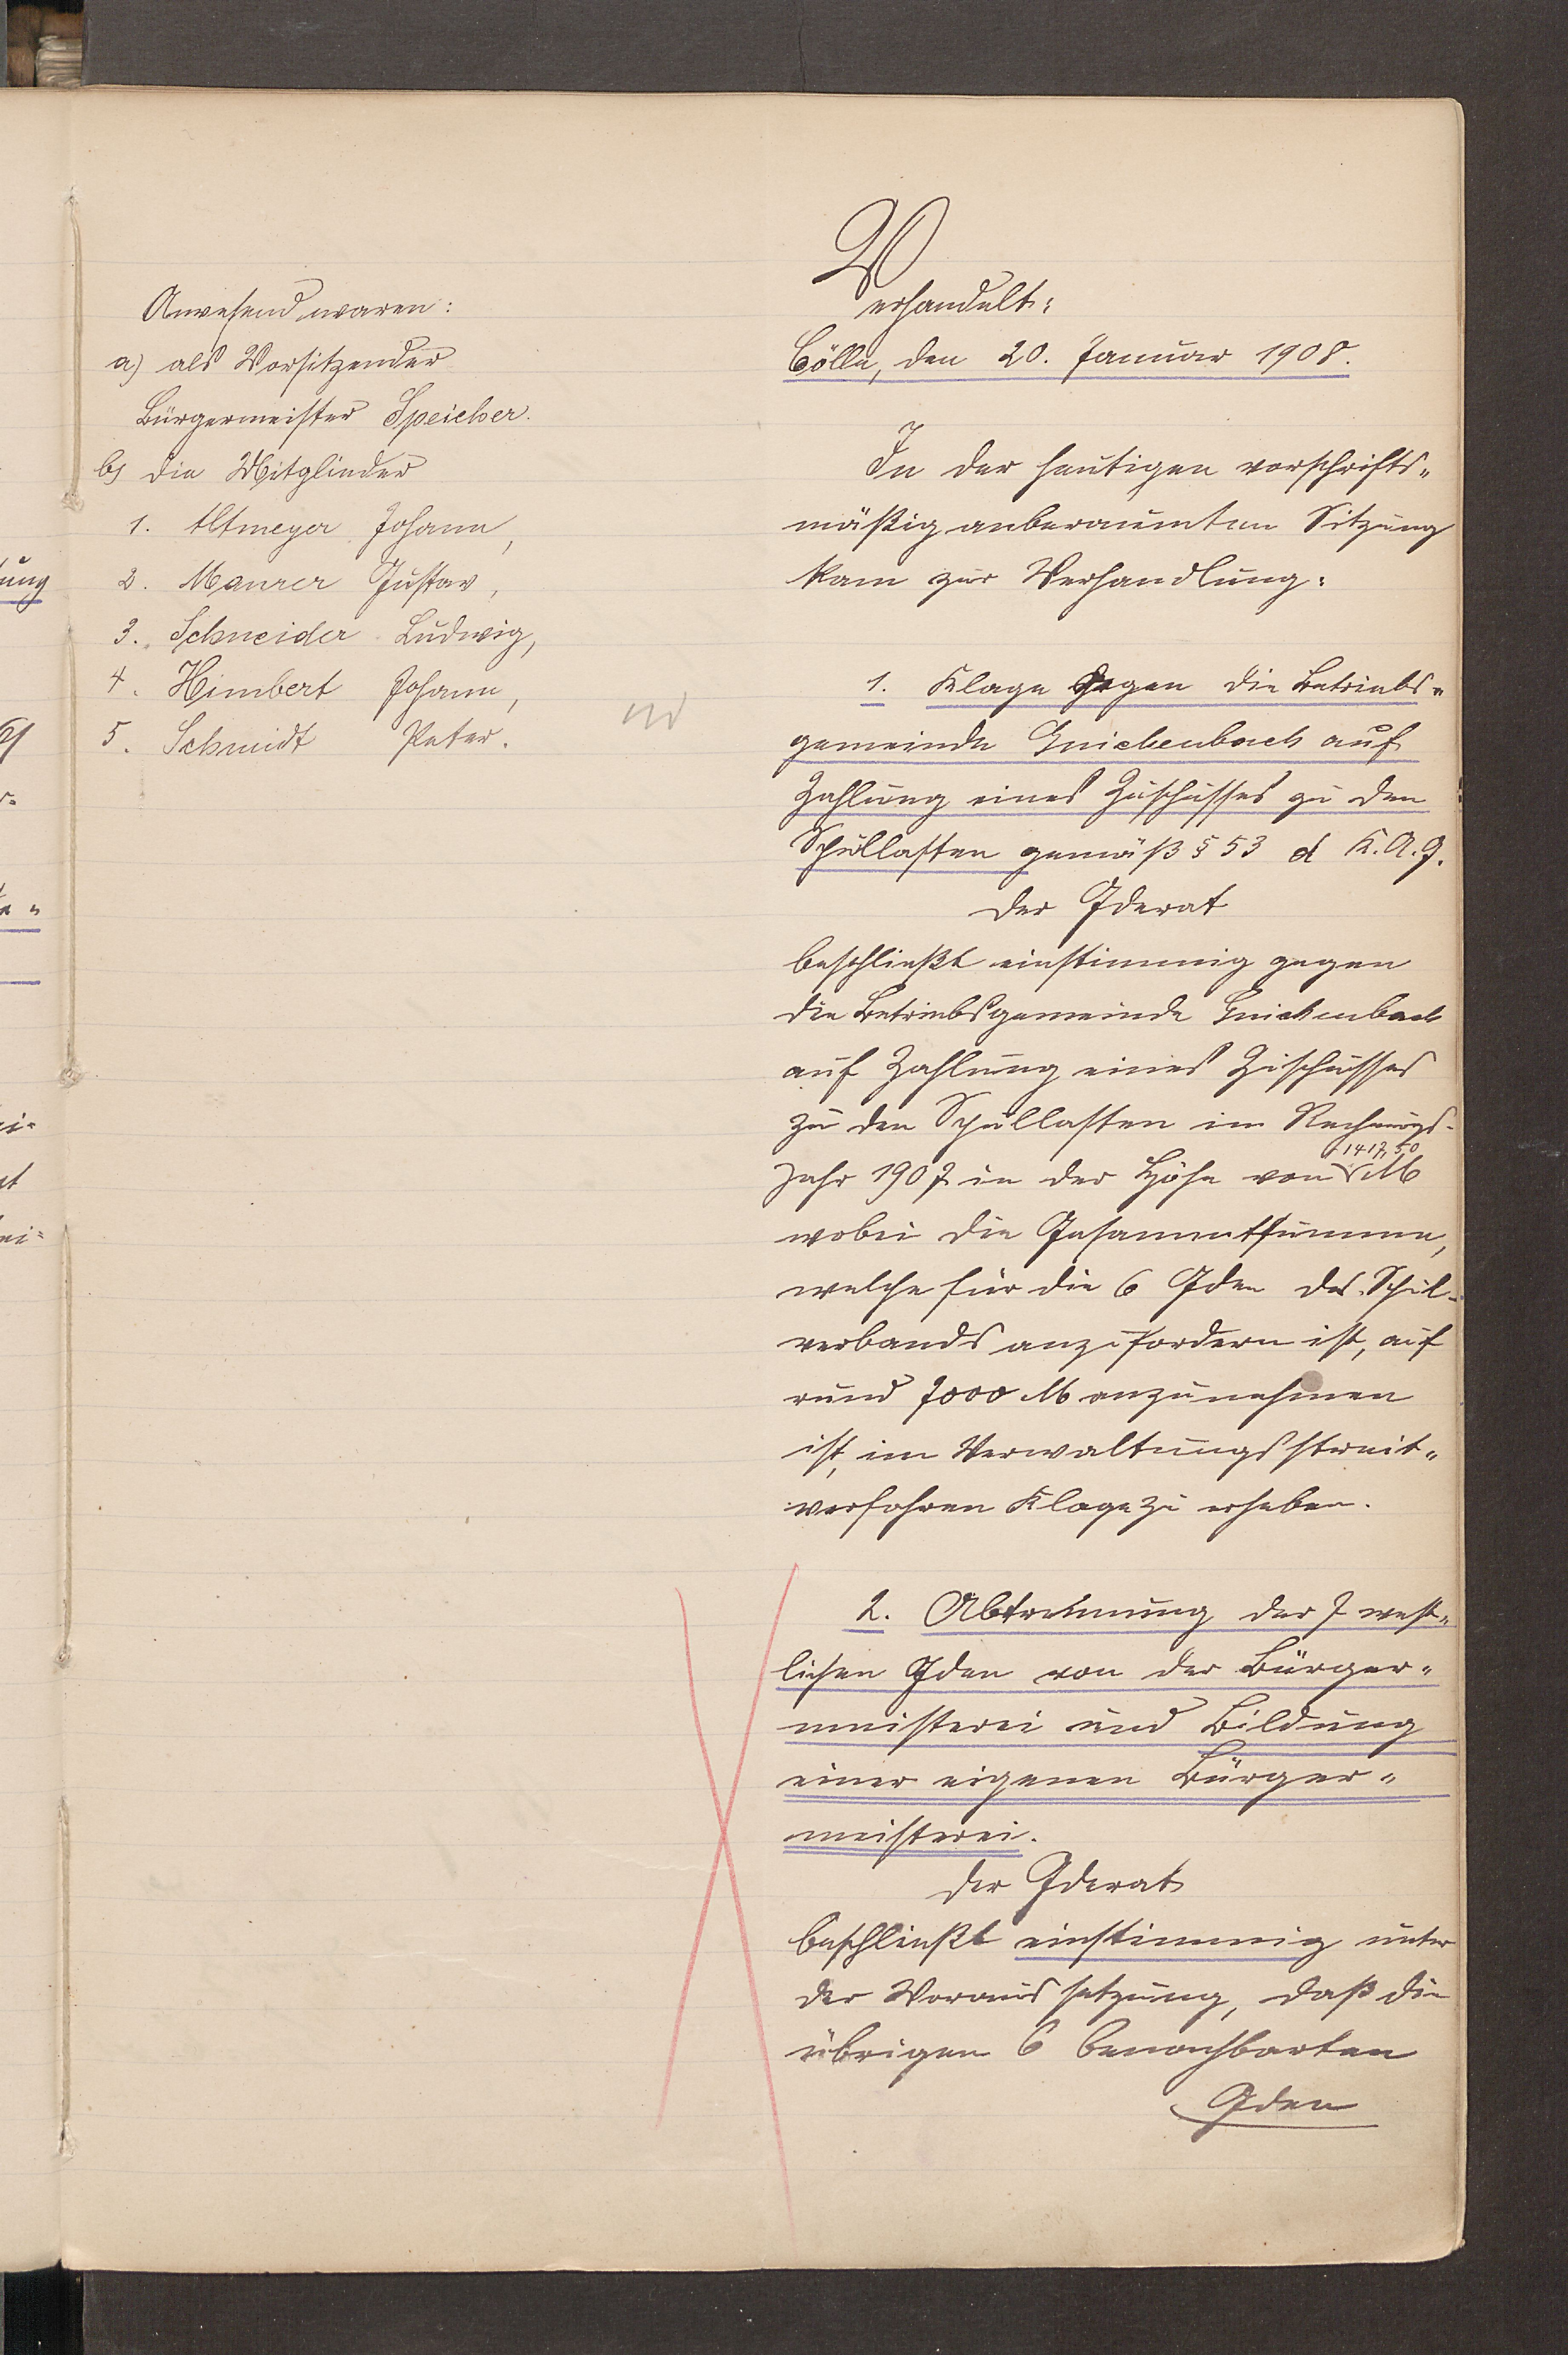 Anwesend waren:
a) als Vorsitzender
Bürgermeister Speicher.
b) die Mitglieder
1. Altmeyer Johann,
2. Maurer Gustav,
3. Schneider Ludwig,
4. Himbert Johann,
5. Schmidt Peter.
Verhandelt:
Cölln, den 20. Januar 1908.
In der heutigen vorschrifts-
mäßig anberaumten Sitzung
kam zur Verhandlung:
1. Klage Gegen die Betriebs-
gemeinde Guichenbach auf
Zahlung eines Zuschusses zu den
Schullasten gemäß § 53 d K.A.G.
Der Gderat
beschließt einstimmig gegen
die Betriebsgemeinde Guichenbach
auf Zahlung eines Zuschusses
zu den Schullasten im Rechnungs-
Jahr 1907 in der Höhe von 1417,50 M
wobei die Gesammtsumme,
welche für die 6 Gden des Schul-
verbands anzufordern ist, auf
rund 7000 M anzunehmen
ist, im Verwaltungsstreit-
verfahren Klage zu erheben.
2. Abtrennung der 7 west-
lichen Gden von der Bürger-
meisterei und Bildung
einer eigenen Bürger-
meisterei.
Der Gderat
beschließt einstimmig unter
der Voraussetzung, daß die
übrigen 6 benachbarten
Gden